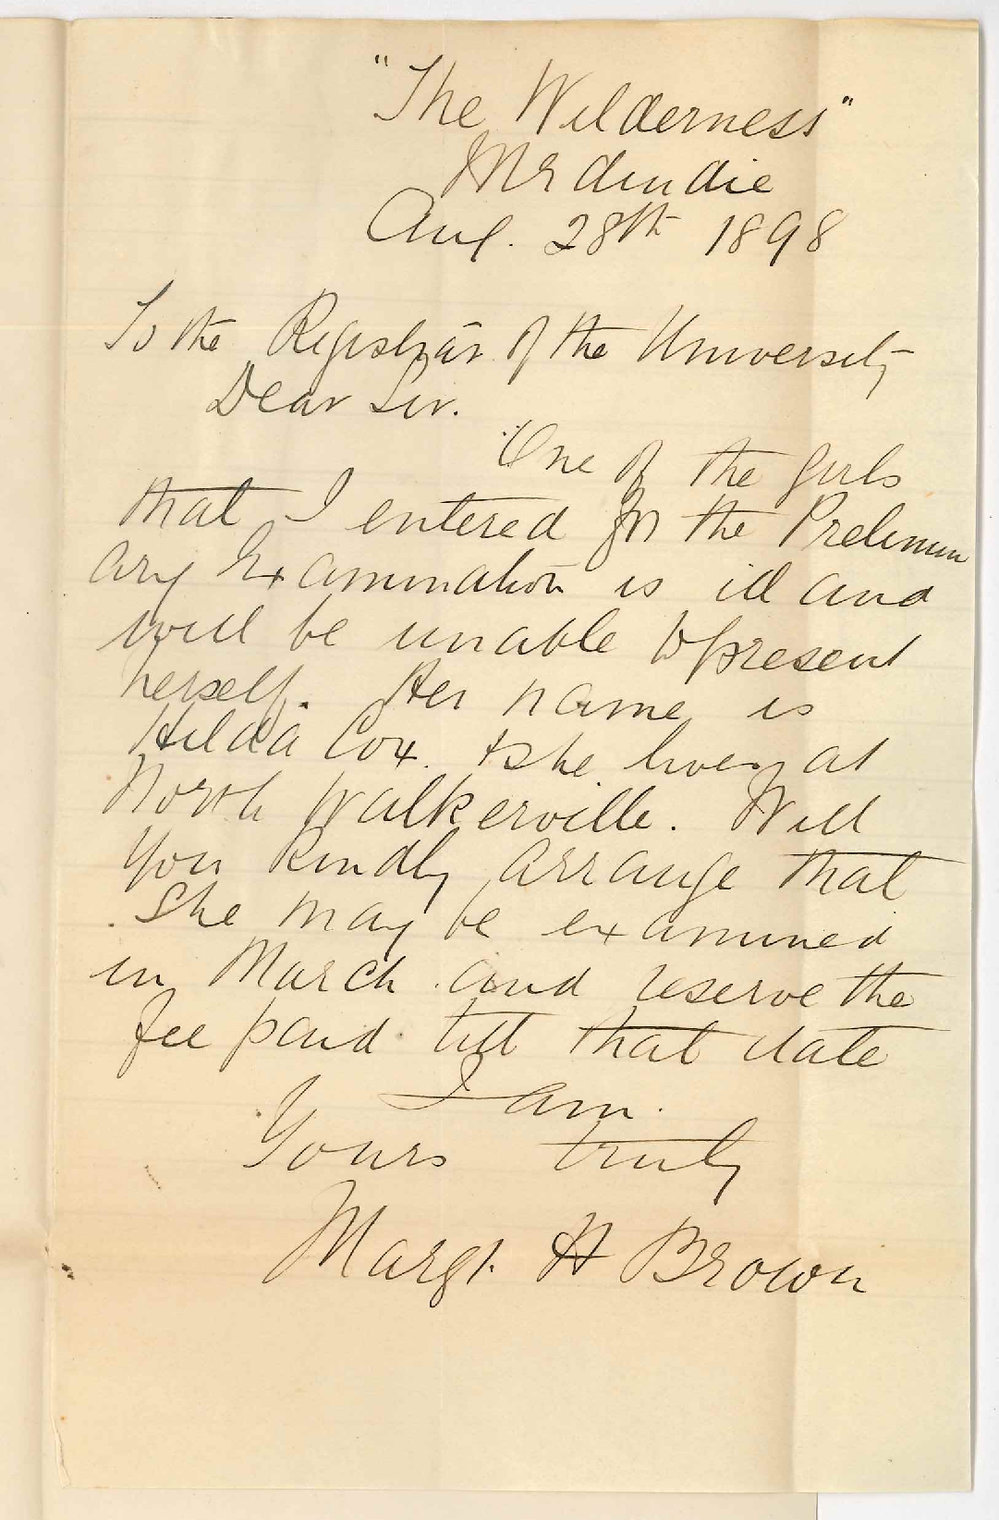 "The Wilderness"
Mŕdindie
Aug. 28th 1898
To the Registrar of the University
Dear Sir.
One of the girls
that I entered for the Prelimin
ary Examination is ill and
will be unable to present
herself. Her name is
Hilda Cox. & she lives at
North Walkerville. Will
you kindly arrange that
she may be examined
in March and reserve the
fee paid till that date
I am.
Yours truly
Margt. H Brown